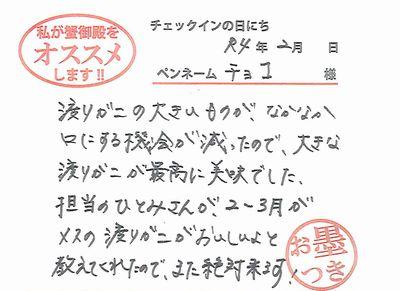 私が蟹御殿を
オススメ
します!!
チェックインの日にち
R4年2月 日
ペンネーム チョコ 様
渡りガニの大きいものが、なかなか
口にする機会が減ったので、大きな
渡りがこが最高に美味でした。
担当のひとみさんが、2~3月が
メスの渡りガニがおいしいよと
教えてくれたので、また絶対来ます!
お墨
つき